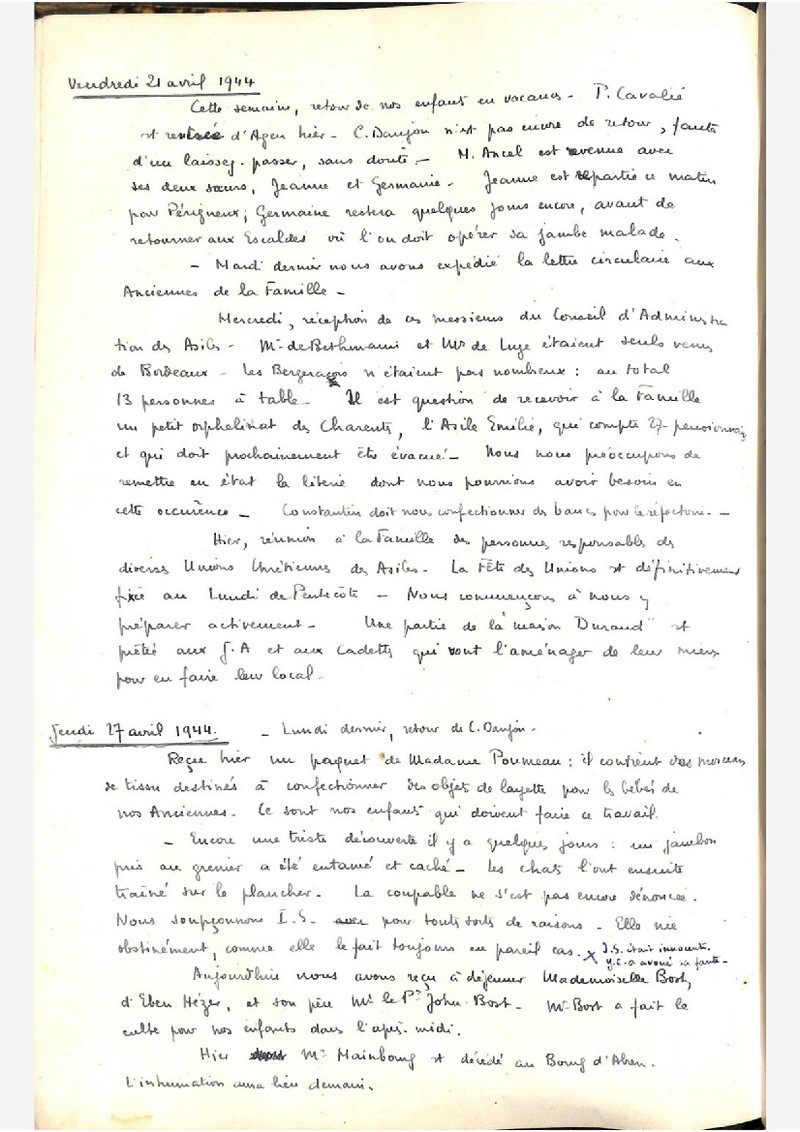 Vendredi 21 avril 1944
Cette semaine, retour de nos enfants en vacances - P. Cavalié
est rentrée d'Agen hier - C. Daujon n'est pas encore de retour, faute
d'un laissez-passer, sans doute. - M. Ancel est revenue avec
ses deux sœurs, Jeanne et Germaine - Jeanne est repartie ce matin
pour Périgueux; Germaine restera quelques jours encore, avant de
retourner aux Escaldes où l'on doit opérer sa jambe malade.
- Mardi dernier nous avons expédié la lettre circulaire aux
Anciennes de la Famille -
Mercredi, réception de ces messieurs du Conseil d'Administra
tion des Asiles - Mr de Bethmann et Mr de Luze étaient seuls venus
de Bordeaux - les Bergeracois n'étaient pas nombreux : au total
13 personnes à table - Il est question de recevoir à la Famille
un petit orphelinat des Charente, l'Asile Emilie, qui compte 27 pensionnaires
et qui doit prochainement être évacué - Nous nous préoccupons de
remettre en état la literie dont nous pourrions avoir besoin en
cette occurence - Constantin doit nous confectionner des bancs pour le réfectoire. -
Hier, réunion à la Famille des personnes responsables des
diverses Unions Chrétiennes des Asiles - La Fête des Unions est définitivement
fixée au Lundi de Pentecôte - Nous commençons à nous y
préparer activement - Une partie de la "maison Durand" est
prêtée aux J.A et aux Cadettes qui vont l'aménager de leur mieux
pour en faire leur local.
Jeudi 27 avril 1944. - Lundi dernier, retour de C. Daujon -
Reçu hier un paquet de Madame Poumeau : il contient des morceaux
de tissu destinés à confectionner des objets de layette pour les bébés de
nos Anciennes - Ce sont nos enfants qui doivent faire ce travail.
- Encore une triste découverte il y a quelques jours : un jambon
pris au grenier a été entamé et caché - les chats l'ont ensuite
traîné sur le plancher - La coupable ne s'est pas encore dénoncée.
Nous soupçonnons I.S. pour toutes sortes de raisons - Elle nie
obstinément, comme elle le fait toujours en pareil cas. x I.S. était innocente.
Y.C. a avoué sa faute -
Aujourd'hui nous avons reçu à déjeuner Mademoiselle Bost,
d'Eben Hézer, et son père Mr le Pr John Bost - Mr Bost a fait le
culte pour nos enfants dans l'après-midi.
Hier Mr Mainbourg est décédé au Bourg d'Abren.
L'inhumation aura lieu demain.